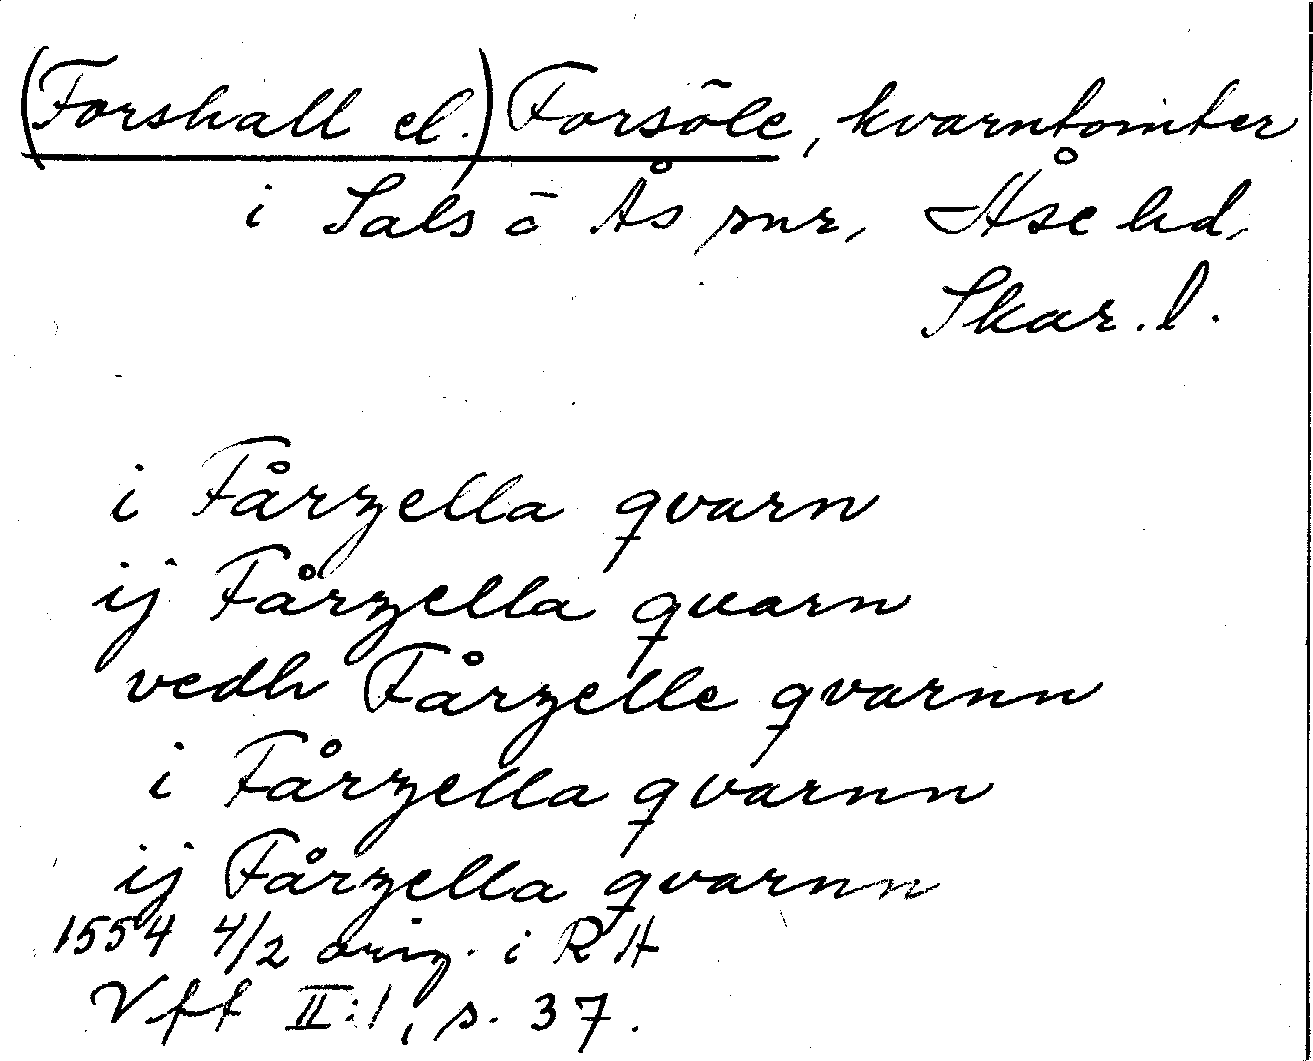 (Forshall el.) Forsöle, kvarntomter
i Sals o Ås snr, Åse hd,
Skar. l.
i Fårzella qvarn
ij Fårzella quarn
vedh Fårzelle qvarnn
i Fårzella qvarnn
ij Fårzella qvarnn
1554 4/2 orig. i RH
Vff II:1, s. 37.